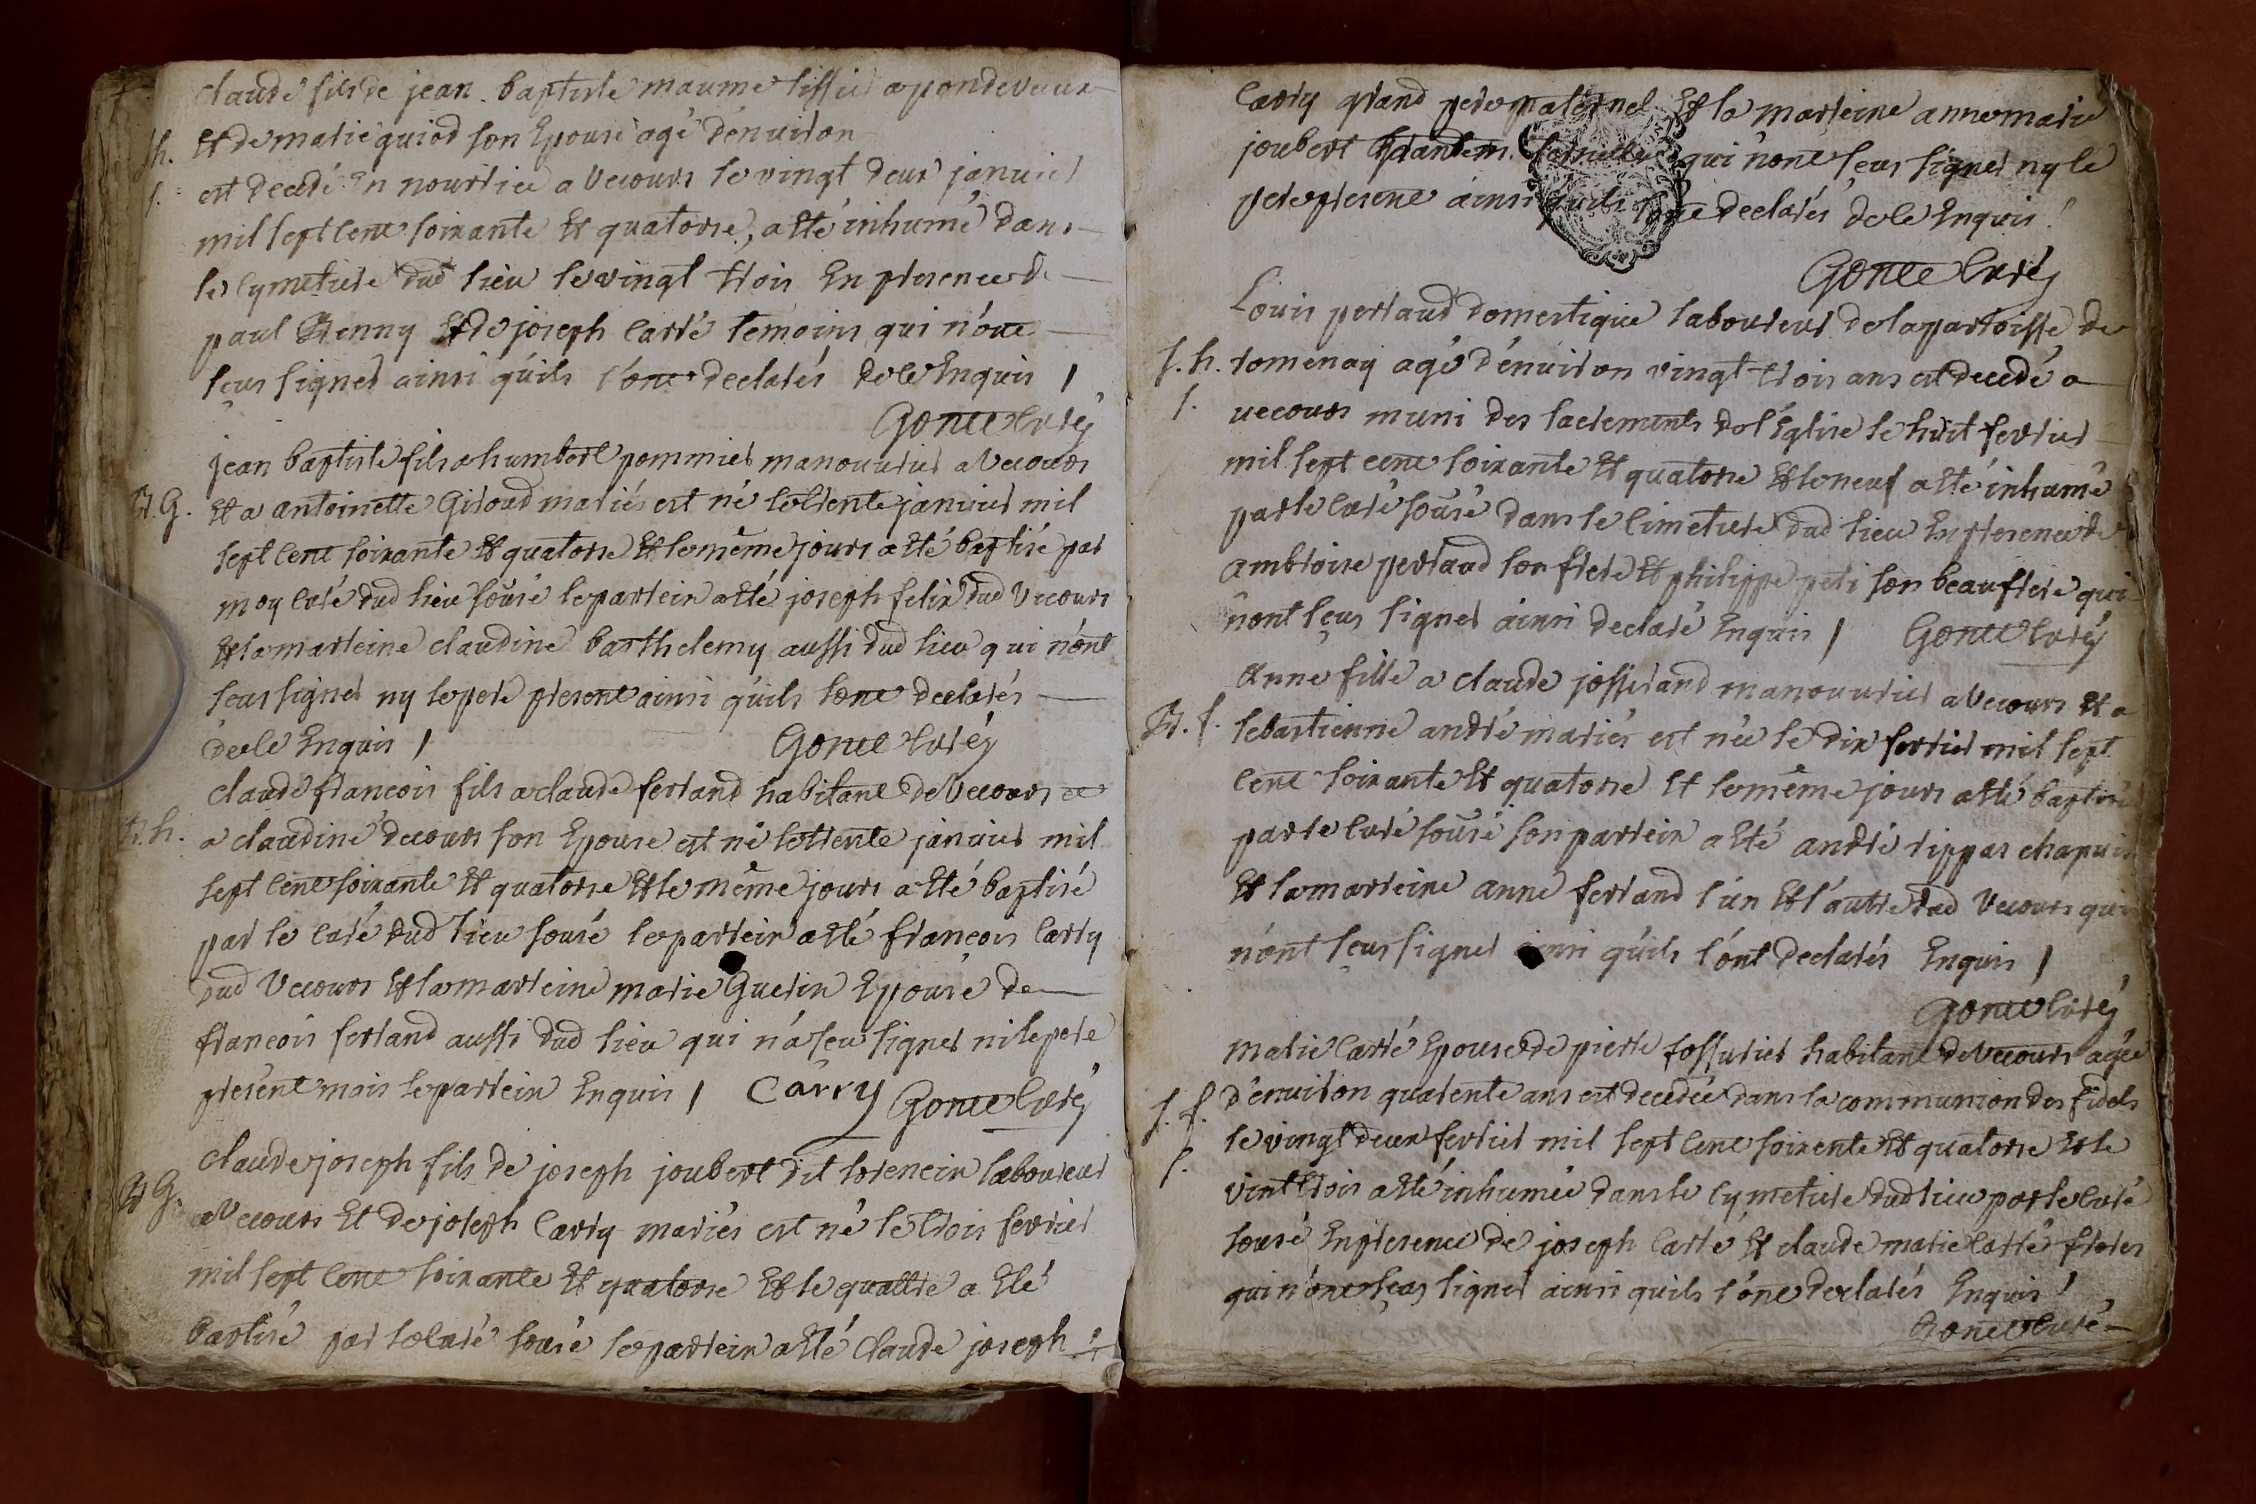 claude fils de jean baptiste maume tissier a pondevaux
h. Et de marie guiod son Epouse agé d'environ
f. est decedé En nourrice a Vecours le vingt deux janvier
mil sept cent soixante Et quatorse, a Eté inhumé dans
le cymetiere dud lieu le vingt trois En presence de
paul Et de joseph carré temoins qui n'ont
seus signer ainsi qu'ils l'ont declarés de le Enquis /
Gonet curé
jean baptiste fils a humbert pommier manouvrier a Vecours
B. G. Et a antoinette Giroud mariés est né le trente janvier mil
sept cent soixante Et quatorse Et le même jours a Eté baptisé par
moy curé dud lieu sousé le parrein a Eté joseph felix dud Vecours
Et la marreine claudine barthelemy aussi dud lieu qui n'ont
seus signer ny le pere present ainsi qu'ils l'ont declarés
de le Enquis / Gonet curé
claude francois fils a claude ferrand habitant de Vecours et
B. h. a claudine decours son Epouse est né le trente janvier mil
sept cent soixante Et quatorse Et le même jours a Eté baptisé
par le curé dud lieu sousé le parrein a Eté francois carry
dud Vecours Et la marreine marie Guerin Epouse de
francois ferrand aussi dud lieu qui n'a seu signer ni le pere
present mais le parrein Enquis / Carry Gonet curé
claude joseph fils de joseph joubert dit lorencin laboureur
B G. a Vecours Et de joseph carry mariés est né le trois fevrier
mil sept cent soixante Et quatorse Et le quattre a Eté
Baptisé par le curé sousé le parrein a Eté claude joseph
carry grand pere maternel Et la marreine anne marie
joubert qui n'ont seus signer ny le
pere present ainsi qu'ils l'ont declarés de le Enquis /
Gonet curé
Louis perraud domestique laboureur de la parroisse de
f. h. romenay agé d'environ vingt trois ans est decedé a
f. vecours muni des sacrements de l'Eglise le huit fevrier
mil sept cent soixante Et quatorse Et le neuf a Eté inhumé
par le curé sousé dans le cimetiere dud lieu En presence de
ambroise perraud son frere Et philippe peti son beaufrere qui
n'ont seus signer ainsi declaré Enquis / Gonet curé
Anne fille a claude josserand manouvrier a Vecours Et a
B. f. sebastienne andré mariés est née le dix fevrier mil sept
cent soixante Et quatorse Et le même jours a Eté baptisée
par le curé sousé son parrein a Eté andré rippas chapuis
Et la marreine anne ferrand l'un Et l'autre dud Vecours qui
n'ont seus signer ainsi qu'ils l'ont declarés Enquis /
Gonet curé
Marie carré Epouse de pierre fossurier habitant de Vecours agée
f. f. d'environ quarente ans est decedée dans la communion des fidels
f. le vingt deux fevrier mil sept cent soixente Et quatorse Et le
vint trois a Eté inhumée dans le cymetiere dud lieu par le curé
sousé En presence de joseph carré Et claude marie carré freres
qui n'ont seus signer ainsi qu'ils l'ont declarés Enquis /
Gonet curé